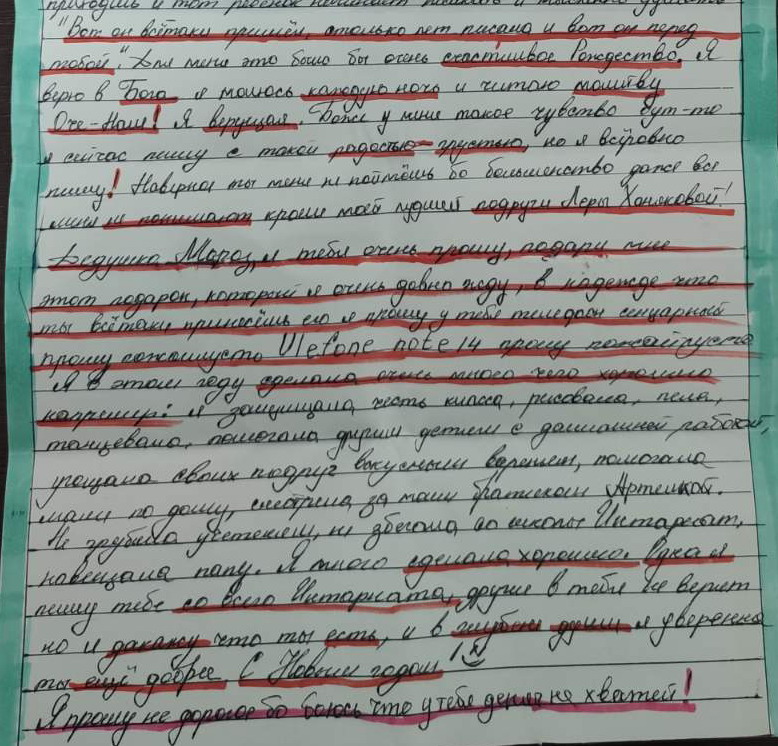 приходишь и тот ребёнок начинает писать и
"Вот он всётаки пришёл, столько лет писала и вот он перед
тобой". Для меня это было бы очень счастливое Рождество. Я
верю в Бога я молюсь каждую ночь и читаю молитву
Оче-Наш! Я верущая. Боже у меня такое чувство бут-то
я сейчас пишу с такой радостью-грустью, но я всёровно
пишу! Наверное ты меня не поймёшь бо большенство даже все
меня не понимают кроме моей лудшей подруги Леры Хоняковой!
Дедушка Мороз, я тебя очень прошу, подари мне
этот подарок, который я очень давно жду, в надежде что
ты всётаки принесёшь его я прошу у тебя телефон сенцарный
прошу пожалуйсто Ulefone note 14 прошу пожайлуста
Я в этом году сделала очень много чего хорошего
например: я защищала честь класса, рисовала, пела,
танцевала, помогала другим детям с домашней работой,
угощала своих подруг вкусным варенем, помогала
маме по дому, смотрела за моим братиком Артемкой.
Не грубила учетелям, не збегала со школы Интарнат,
навещала папу. Я много сделала хорошего. Одна я
пишу тебе со всего Интарната, другие в тебя не верят
но я докажу что ты есть, и в глубине души я уверенна
ты ещё добрее С Новым годом!
Я прошу не дорогое бо боюсь что у тебя денег не хватей!